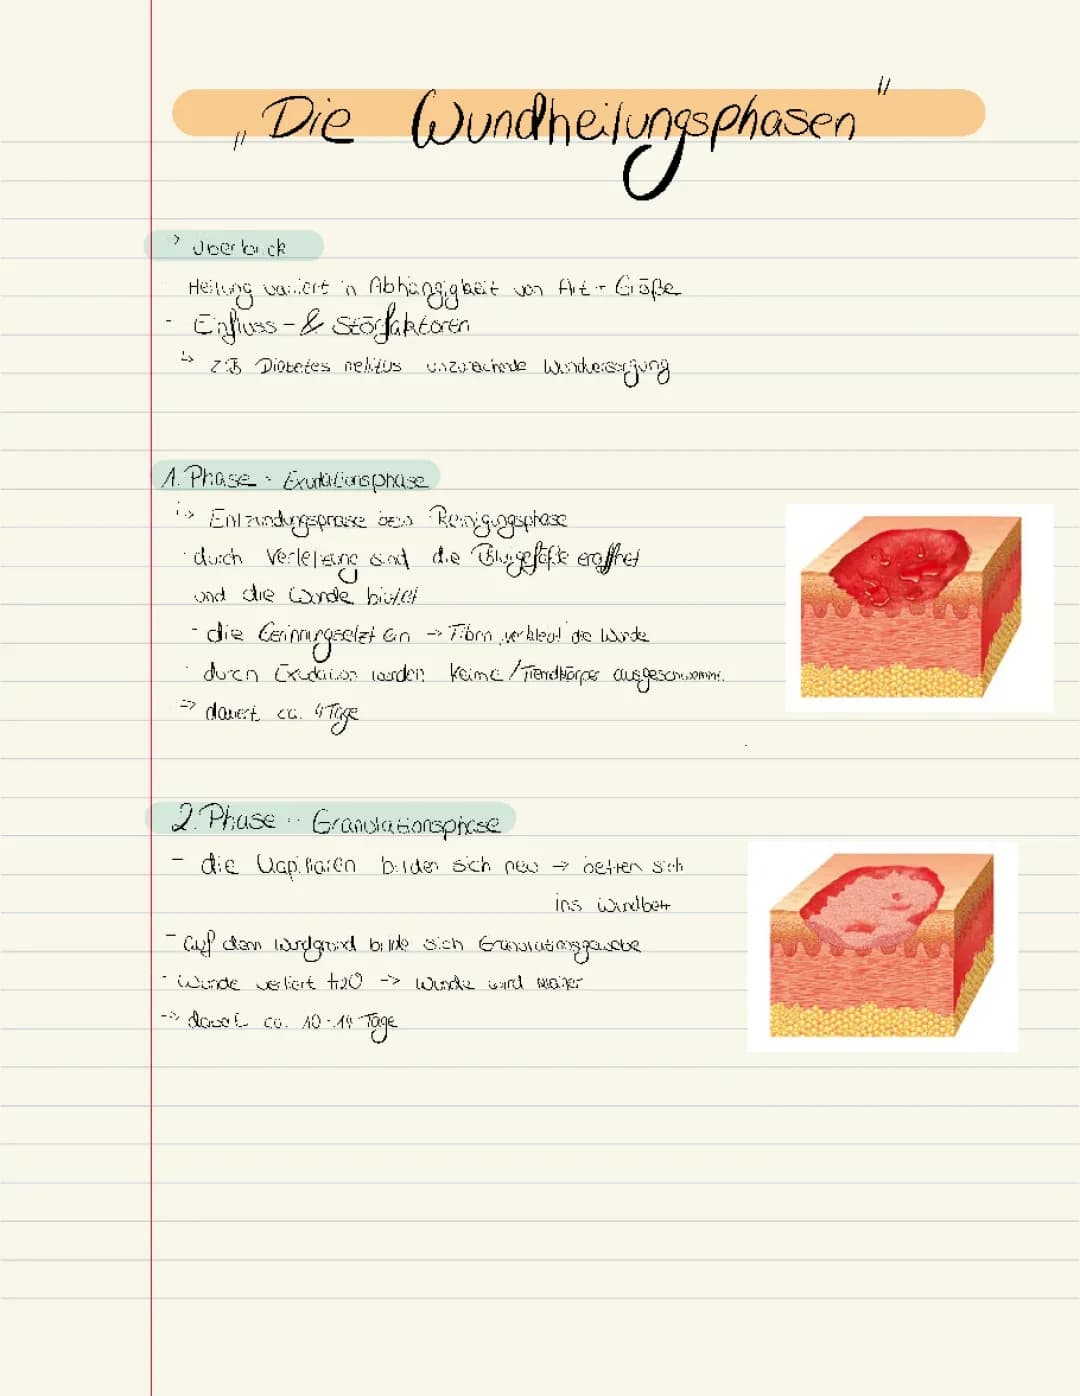 „Die Wundheilungsphasen"
> Überblick
Heilung variiert in Abhängigkeit von Art + Größe
- Einfluss- & Störfaktoren
↳ z.B Diabetes mellitus unzureichende Wundversorgung
1. Phase - Exudationsphase
↳ Entzündungsphase bzw Reinigungsphase
- durch Verletzung sind die Blutgefäße eröffnet
und die Wunde blutet
- die Gerinnung setzt ein → Fibrin verklebt die Wunde
- durch Exudation werden Keime/Fremdkörper ausgeschwemmt
=> dauert ca. 4 Tage
2. Phase - Granulationsphase
- die Kapillaren bilden sich neu → betten sich
ins Wundbett
- Auf dem Wundgrund bilde sich Granulationsgewebe
- Wunde verliert H2O -> Wunde wird kleiner
-> dauert ca. 10-14 Tage